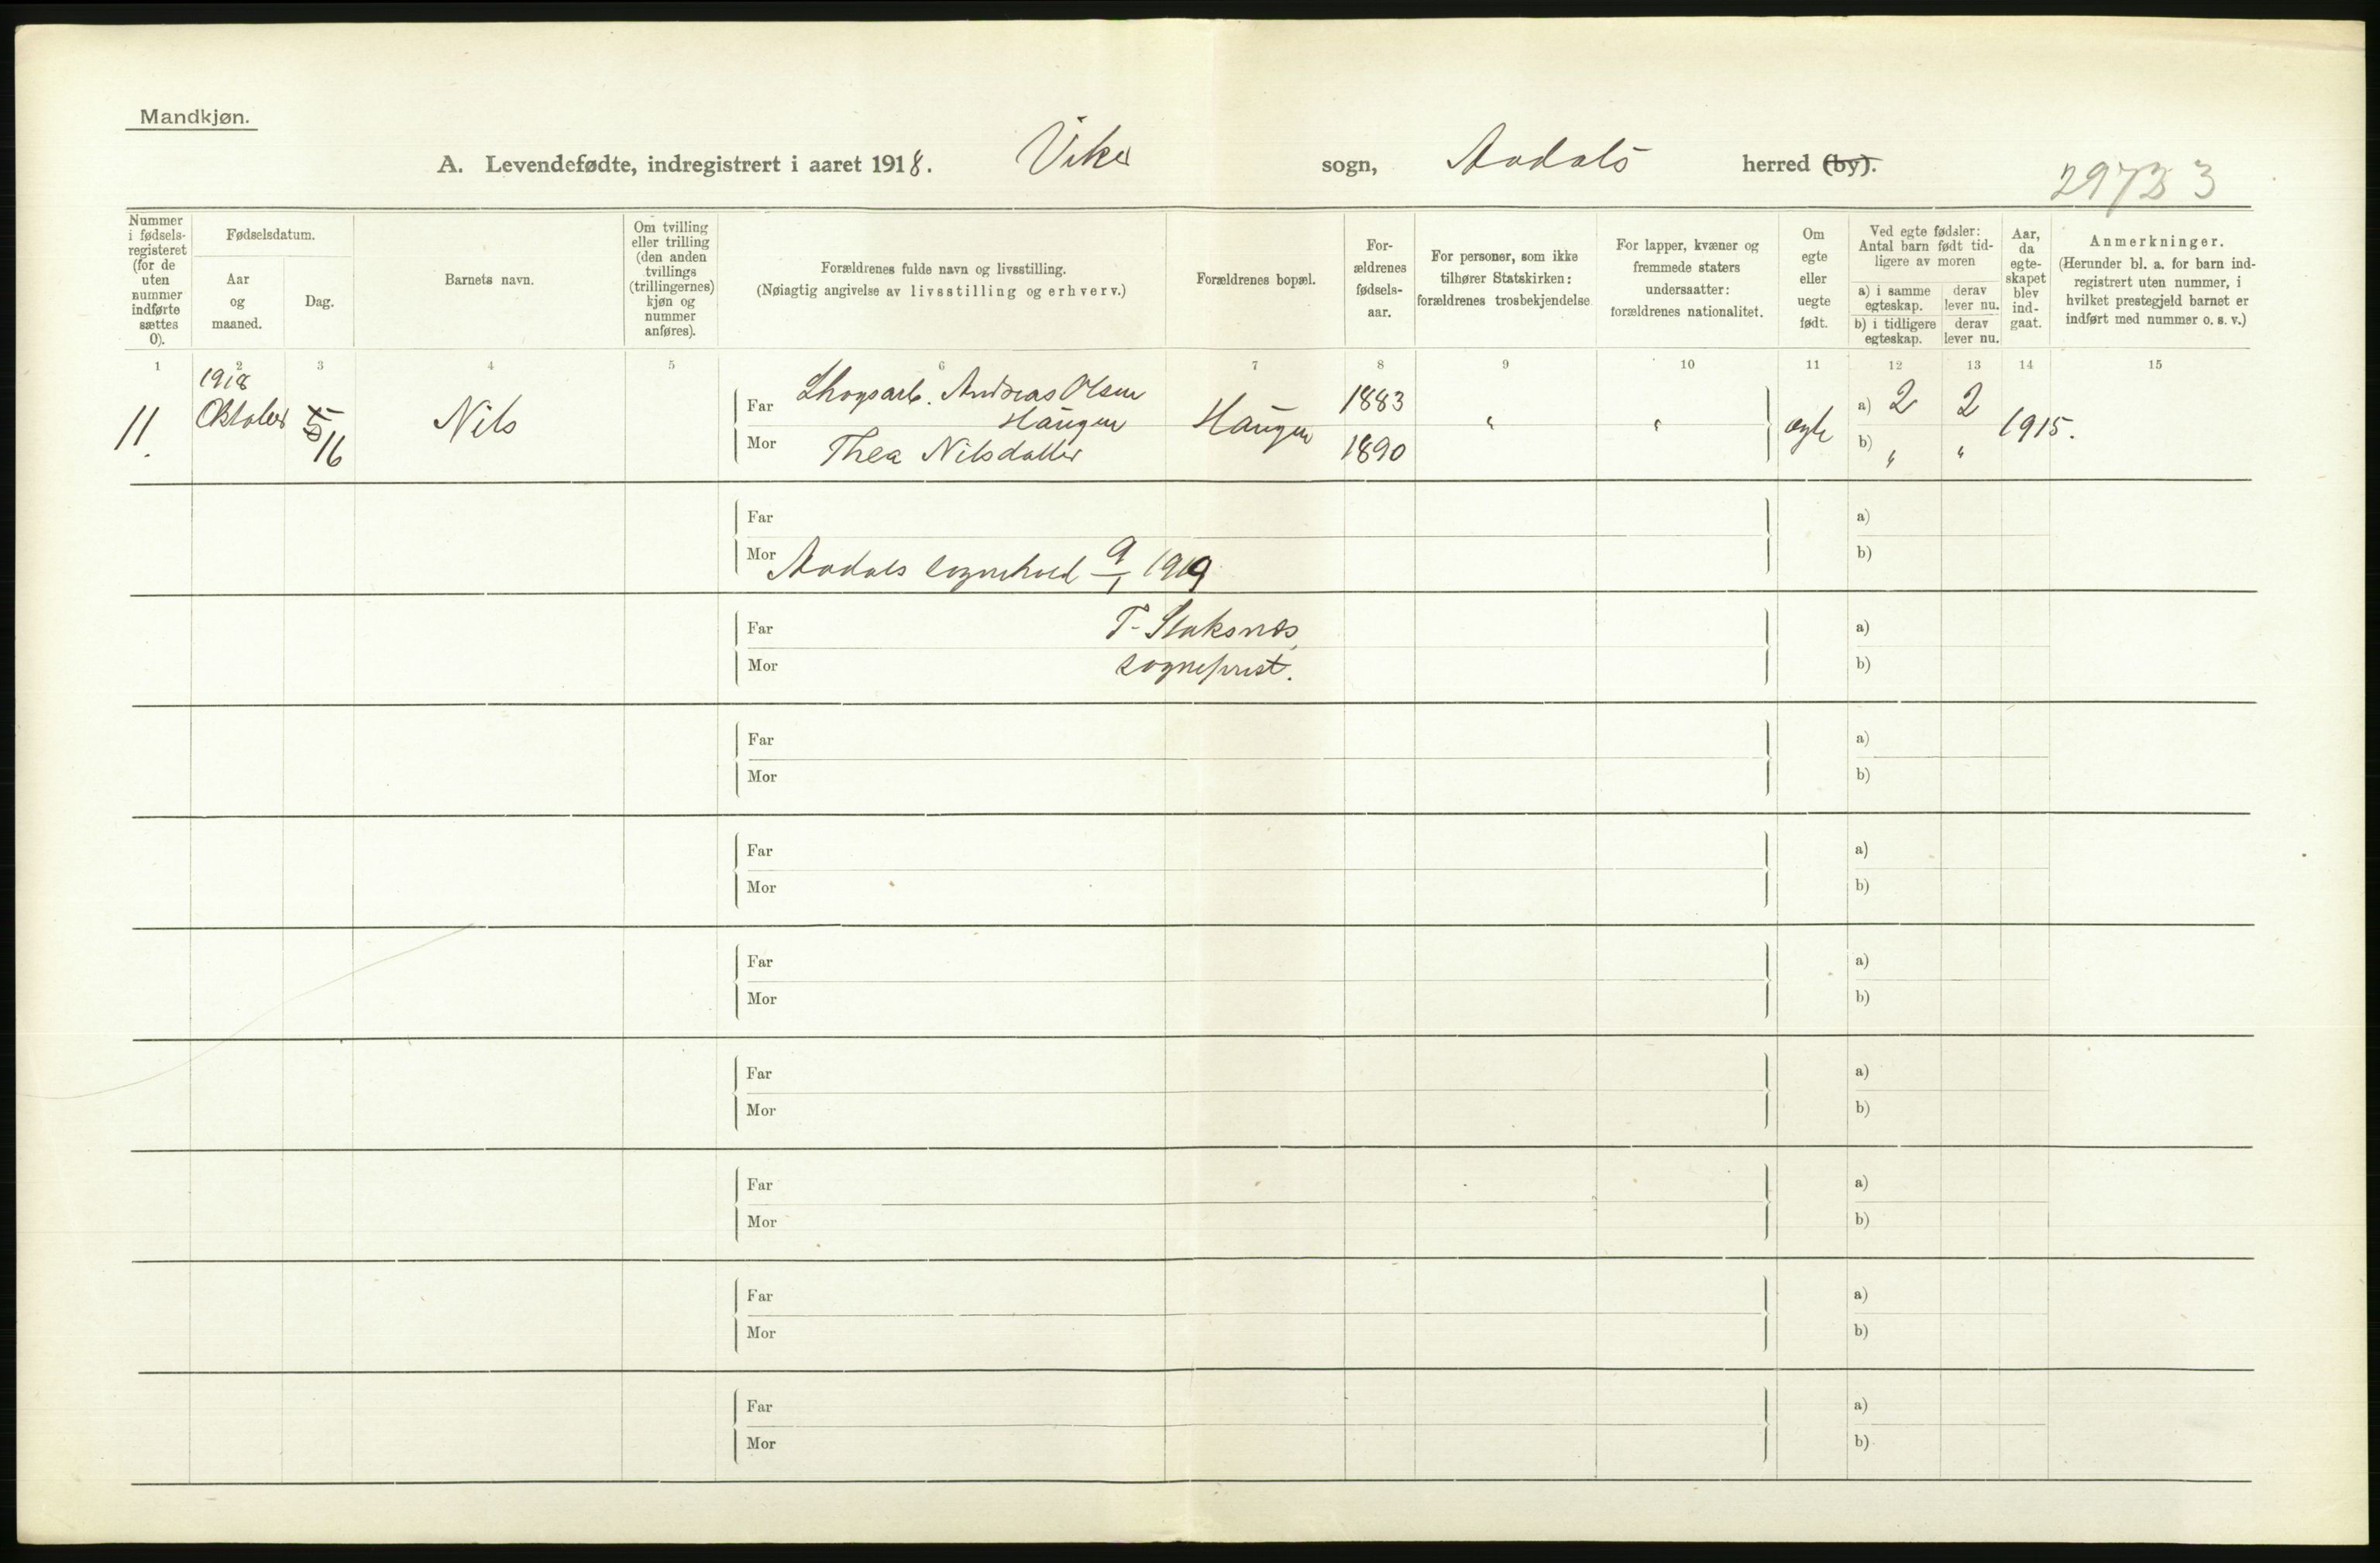 Mandkjøn.
A. Levendefødte, indregistrert i aaret 1918. Viker sogn, Aadals herred (by).
2973 3
Nummer i fødsels-registeret (for de uten nummer indførte sættes 0).
Fødselsdatum.
Aar og maaned.
Dag.
Barnets navn.
Om tvilling eller trilling (den anden tvillings (trillingernes) kjøn og nummer anføres).
Forældrenes fulde navn og livsstilling.
(Nøiagtig angivelse av livsstilling og erhverv.)
Forældrenes bopæl.
For-ældrenes fødsels-aar.
For personer, som ikke tilhører Statskirken: forældrenes trosbekjendelse.
For lapper, kvæner og fremmede staters undersaatter: forældrenes nationalitet.
Om egte eller uegte født.
Ved egte fødsler: Antal barn født tid-ligere av moren
a) i samme egteskap.
derav lever nu.
b) i tidligere egteskap.
derav lever nu.
Aar, da egte-skapet blev ind-gaat.
Anmerkninger.
(Herunder bl. a. for barn ind-registrert uten nummer, i hvilket prestegjeld barnet er indført med nummer o. s. v.)
1 2 3 4 5 6 7 8 9 10 11 12 13 14 15
1918
11. Oktober 5 16 Nils
Far Skogsarb. Andreas Olsen Haugen
Mor Thea Nilsdatter
Haugen 1883 1890 " " egte a) 2 2 b) " " 1915.
Far a)
Mor Aadals sognekald 9/1 1919 b)
Far T. Slaksnes, a)
Mor sogneprest. b)
Far a)
Mor b)
Far a)
Mor b)
Far a)
Mor b)
Far a)
Mor b)
Far a)
Mor b)
Far a)
Mor b)
Far a)
Mor b)